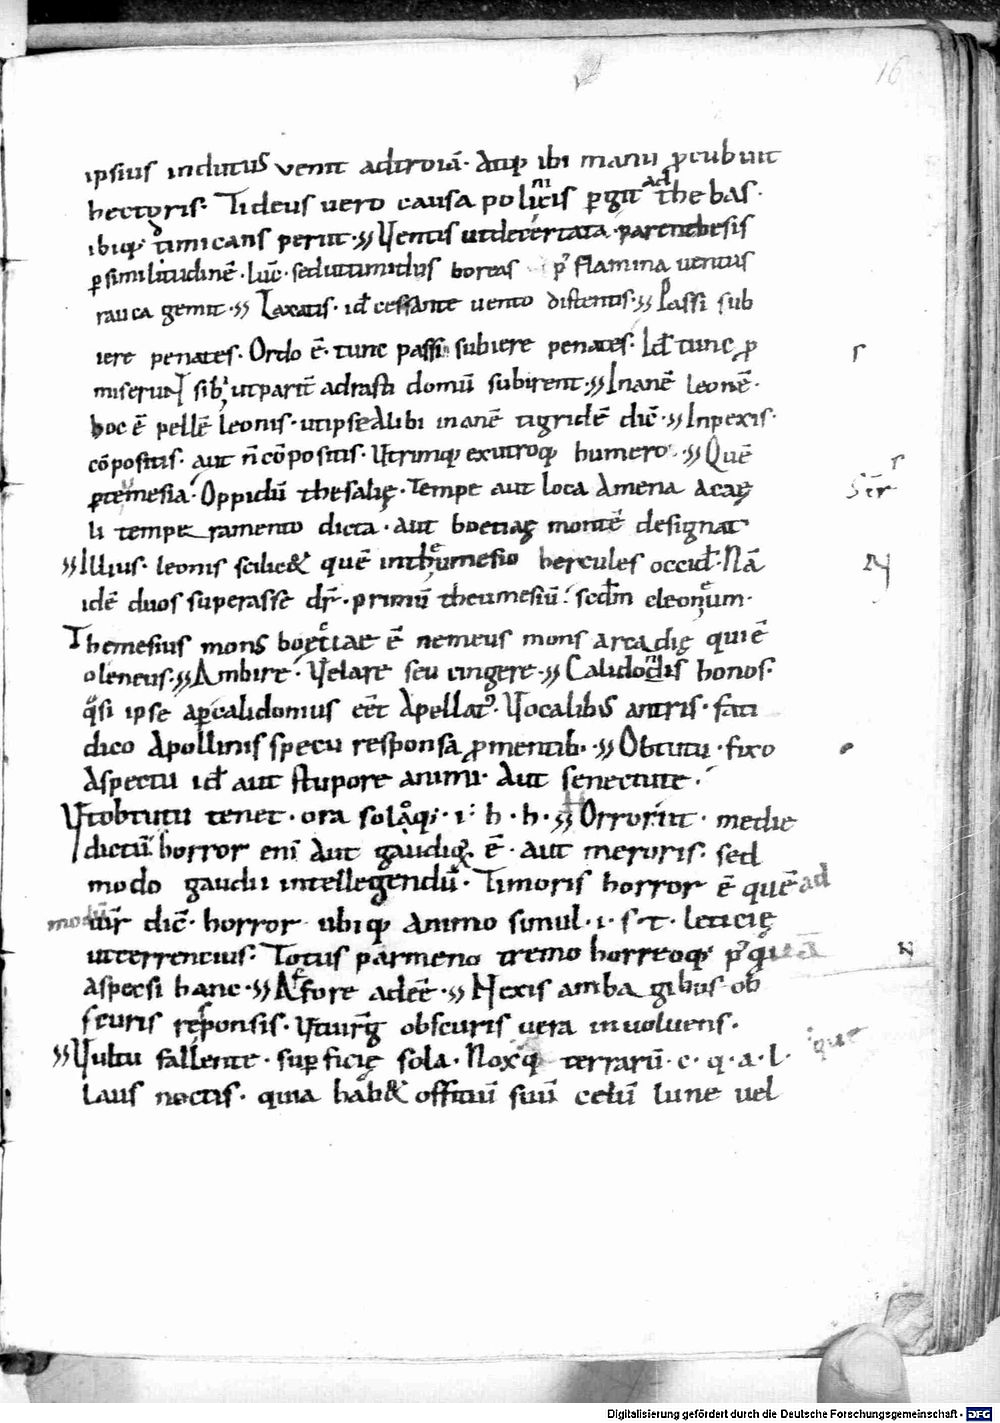 16
ipsius indutus venit adtroiā. Atq; ibi manu ꝓcubuit
hectoris. Tideus vero causa polinicis ꝑgit ad thebas.
ibiq; dimicans periit. Ventis utdecertata parenthesis
ꝑsimilitudinē. Luc̄. sedutimidus boreas p̄ flamina ventus
rauca gemit. Laxatis. id̄ cessante vento distentis. Passi sub
iere penates. Ordo ē. tunc passi subiere penates. Id̄ tunc ꝓ
miserunt sibi utpartē adrasti domū subirent. Inanē leonē.
hoc ē pellē leonis. utipse Alibi inanē tigridē dic̄. Inpexis.
cōpositis. aut n̄ cōpositis. Utrimq; exutroq; humero. Quē
ꝑtemesia. Oppidū thesalię. Tempe aut loca Amena Acaę
li temperamento dicta. aut boetiaę montē designat
Illius. leonis scilic& quē inth mesio hercules occid̄. Nā
idē duos superasse dr̄. primū theumesiū. sed̄m cleoneum.
Themesius mons boetiae ē nemeus mons arcadię quiē
oleneus. Ambire. Velare seu cingere. Calidonis honos.
qᵃsi ipse aper calidonius eēt Apellat. Vocalibus antris. fati
dico Apollinis specu responsa ꝓmentib. Obtutu. fixo
Aspectu id̄ aut stupore animi. Aut senectute.
Vtobtutu tenet. ora soloq;. i. h. h. Orroruit. medie
dictū. horror eni Aut gaudii ē. aut meroris. sed
modo gaudii intellegendū. Timoris horror ē quē ad
modū ur̄ dic̄. horror ubiq; Animo simul. i. s. t. leticię
utterrentius. Totus parmeno tremo horreoq; p̄quā
aspecsi hanc. Affore adeē. Nexis ambagibus ob
scuris responsis. Vt uirḡ obscuris vera inuoluens.
Vultu fallente. suꝑficię sola. Noxq; terrarū. c. q. a. l. que
Laus noctis. quia hab& offitiū suū celū lune vel
Digitalisierung gefördert durch die Deutsche Forschungsgemeinschaft - DFG